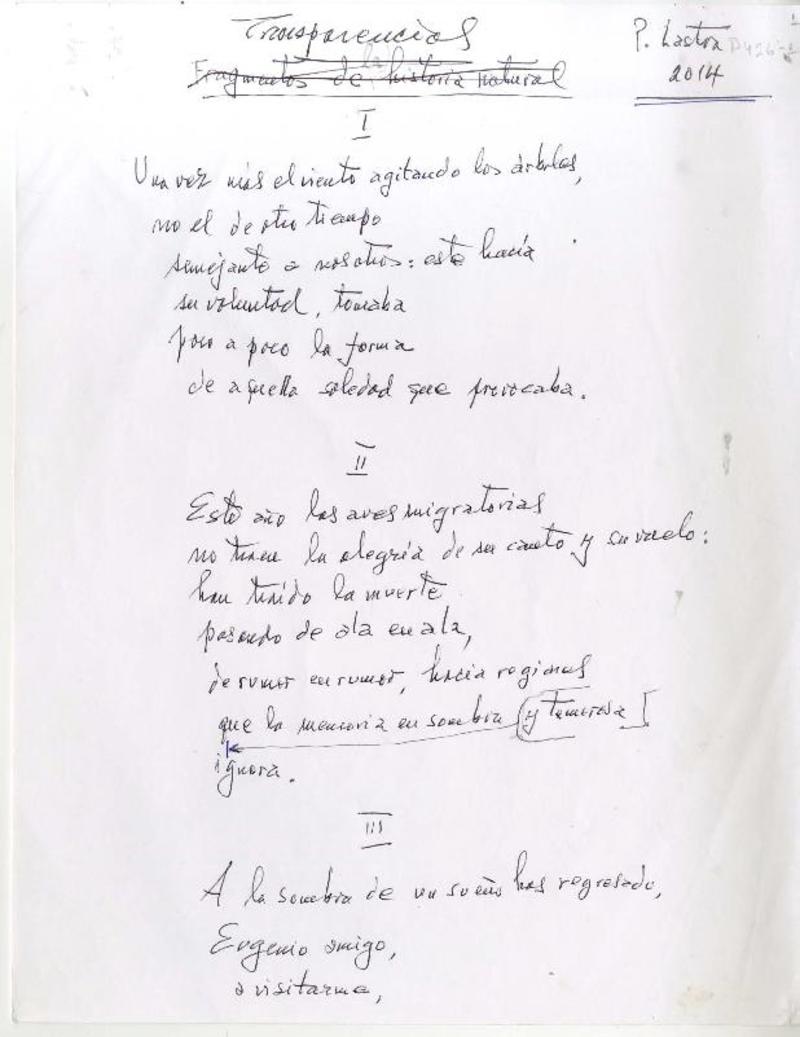 Transparencias
P. Lastra
2014
Fragmentos de la historia natural
I
Una vez más el viento agitando los árboles,
no el de otro tiempo
semejante a nosotros: este hacía
su voluntad, tomaba
poco a poco la forma
de aquella soledad que provocaba.
II
Este año las aves migratorias
no tienen la alegría de su canto y su vuelo:
han tenido la muerte
pasando de ala en ala,
de rumor en rumor, hacia regiones
que la memoria en sombra (y temerosa
ignora.
III
A la sombra de un sueño has regresado,
Eugenio amigo,
a visitarme,